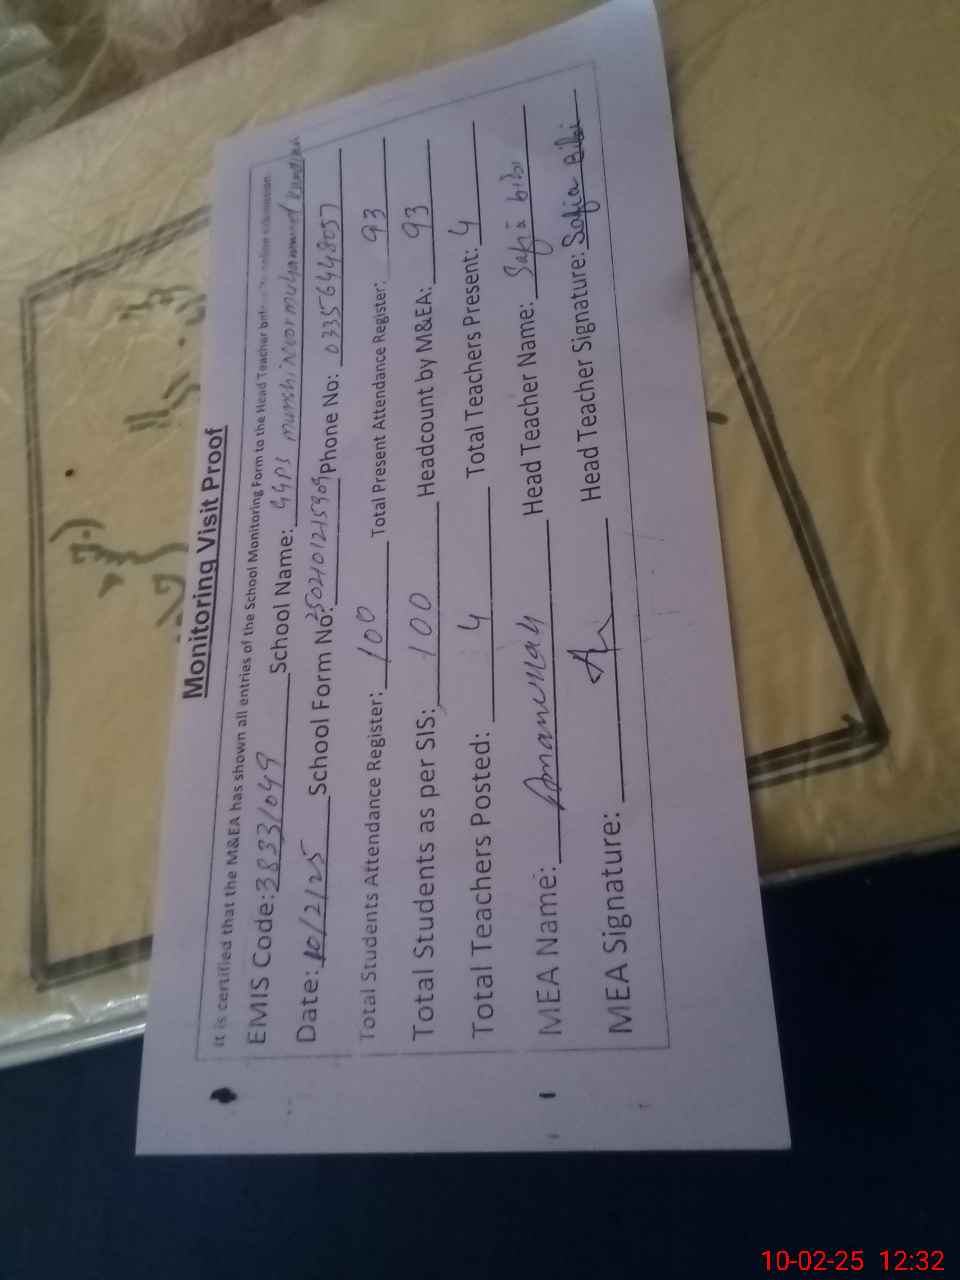 Monitoring Visit Proof
It is certified that the M&EA has shown all entries of the School Monitoring Form to the Head Teacher before submission
EMIS Code: 38331049 School Name: GGPS munshi Noor muhammad
Date: 10/2/25 School Form No: 2502101215909 Phone No: 03356448057
Total Students Attendance Register: 100 Total Present Attendance Register: 93
Total Students as per SIS: 100 Headcount by M&EA: 93
Total Teachers Posted: 4 Total Teachers Present: 4
MEA Name: Amanullah Head Teacher Name: Safia bibi
MEA Signature: Head Teacher Signature: Safia Bibi
10-02-25 12:32